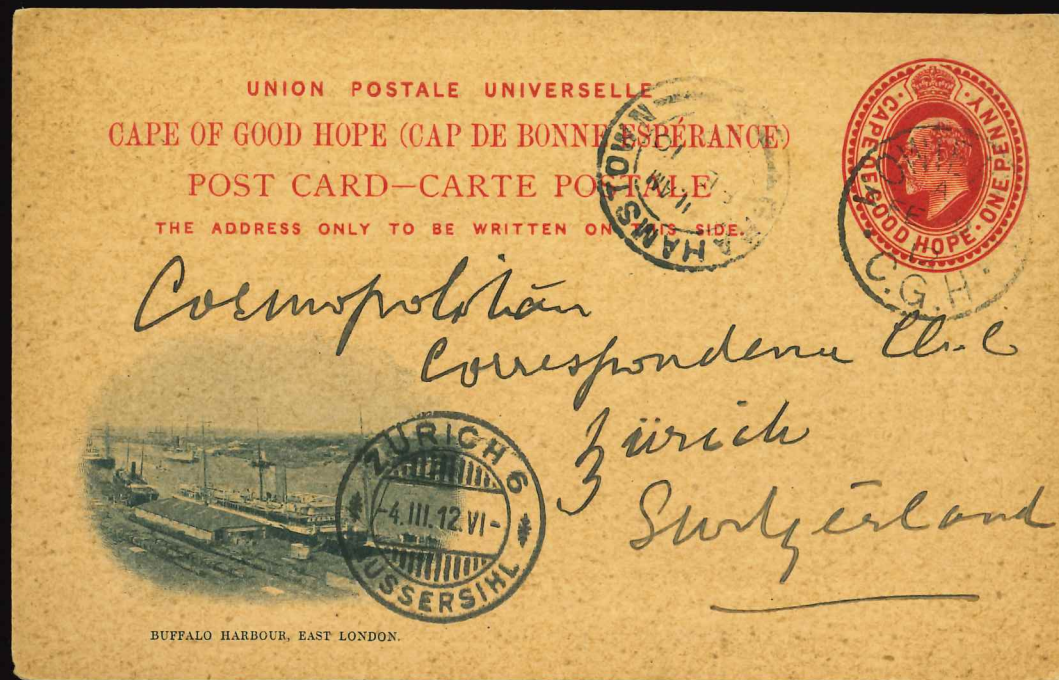 UNION POSTALE UNIVERSELLE
CAPE OF GOOD HOPE (CAP DE BONNE ESPÉRANCE)
POST CARD—CARTE POSTALE
THE ADDRESS ONLY TO BE WRITTEN ON THIS SIDE.
CAPE OF GOOD HOPE · ONE PENNY
C.G.H.
HAMSTOWN
11 AM
Cosmopolitan
Correspondence
Zürich
Switzerland
ZÜRICH 6
-4.III.12.VI-
AUSSERSIHL
BUFFALO HARBOUR, EAST LONDON.